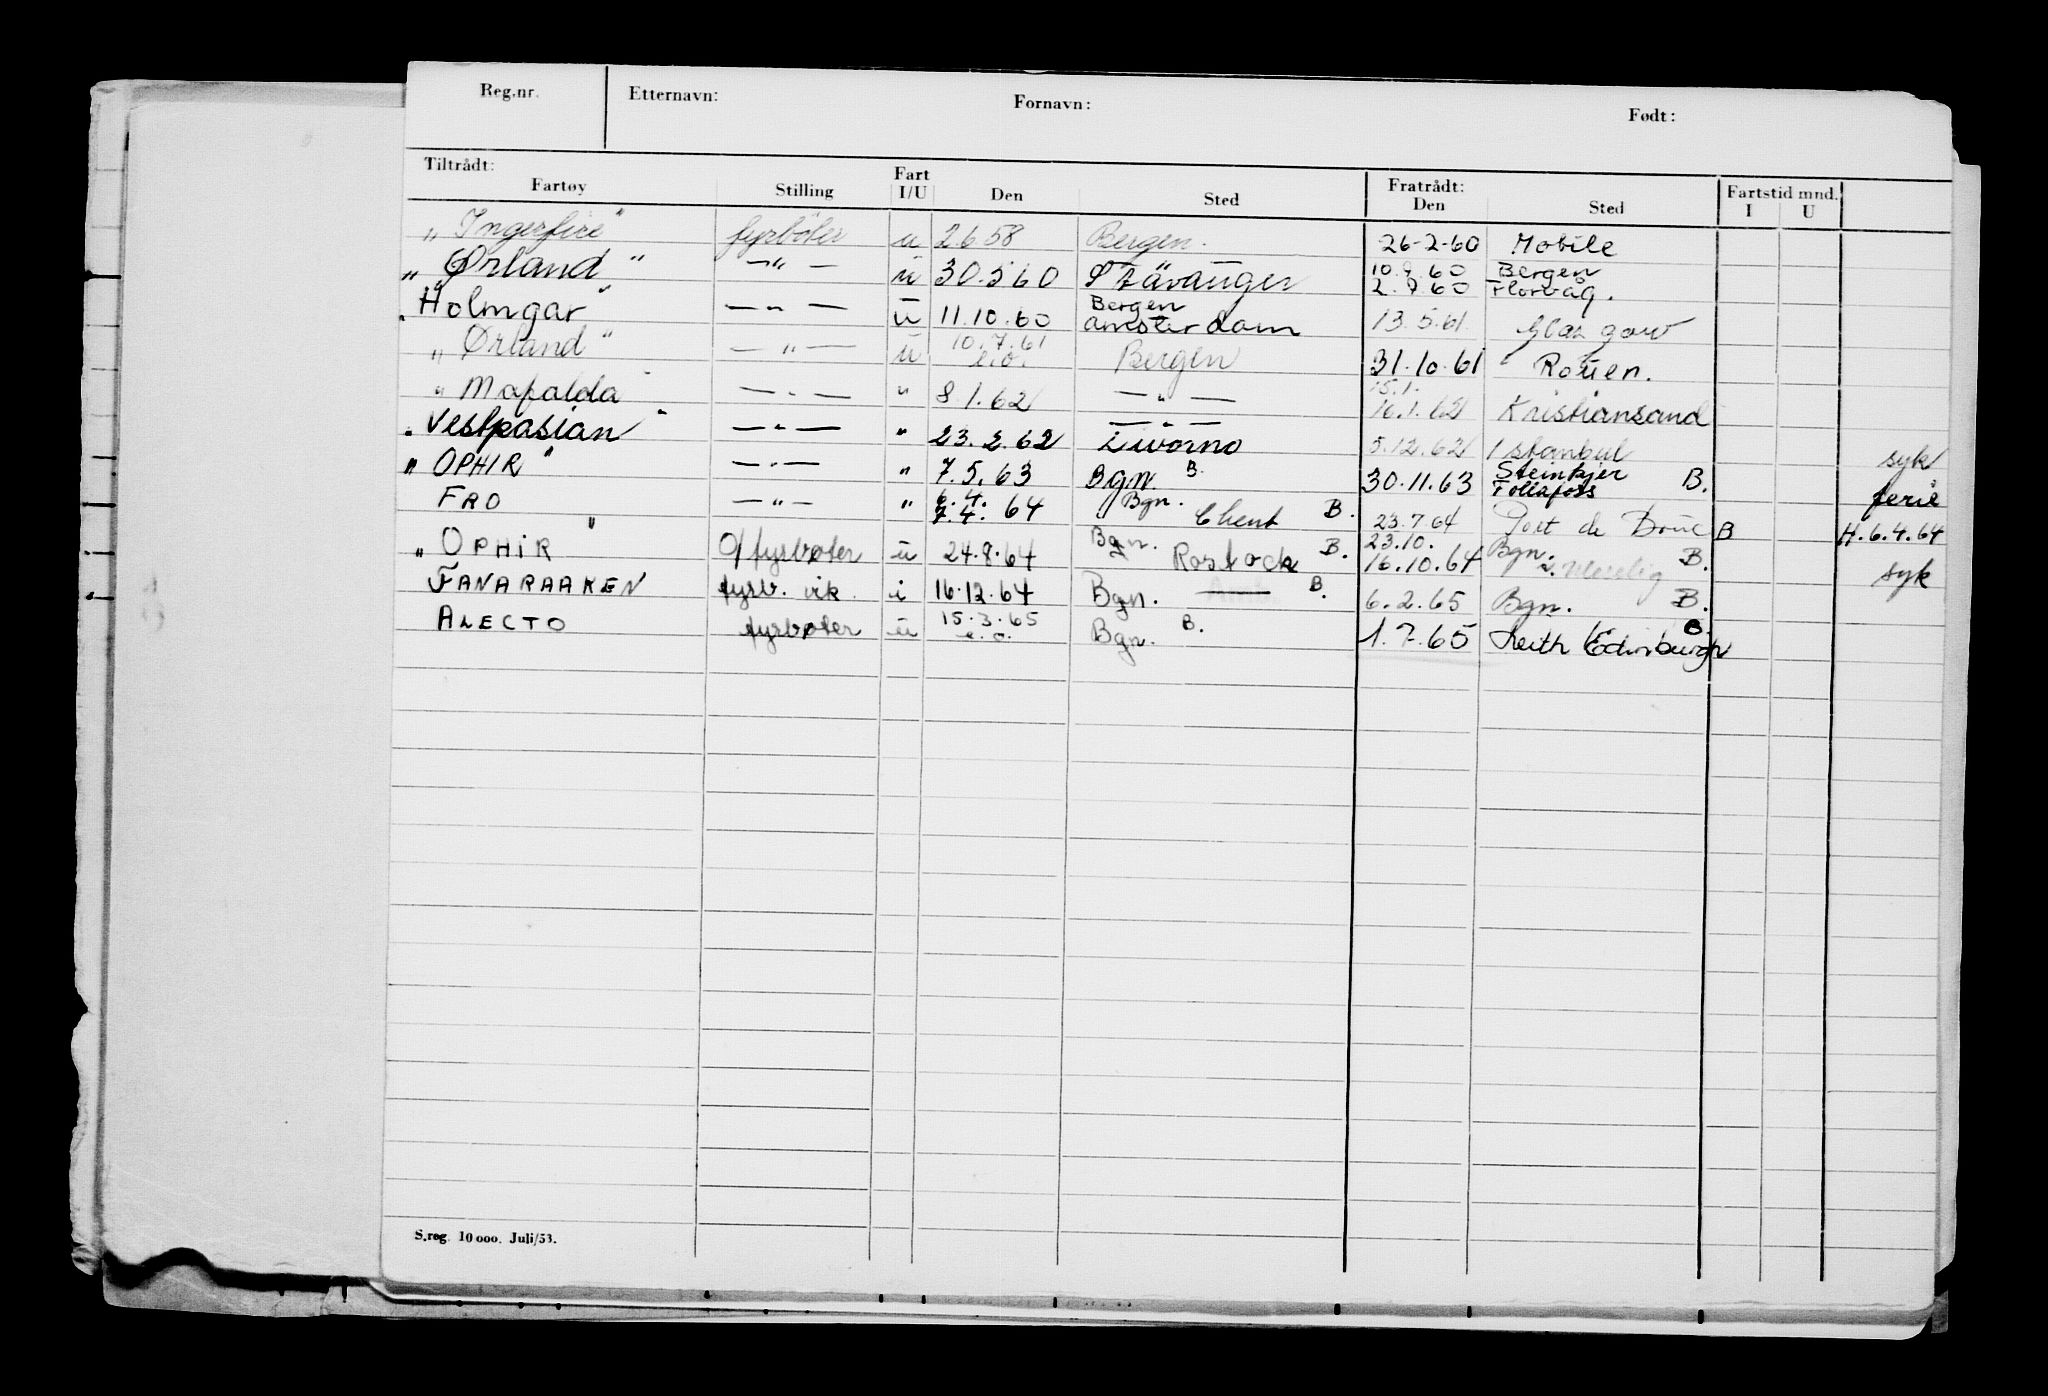 Reg.nr. Etternavn: Fornavn: Født:
Tiltrådt: Fart Fratrådt: Fartstid mnd.
Fartøy Stilling I/U Den Sted Den Sted I U
„ Ingerfire " fyrbøter u 2 6 58 Bergen. 26-2-60 Mobile
„ Ørland " —„— u 30.5 60 Stavanger 10.9.60 Bergen
2.9.60 Florvåg.
„ Holmgar " —„— u 11.10.60 Bergen
Amsterdam 13.5.61 Glasgow
„ Ørland " —„— u 10.7.61
e.o. Bergen 31.10.61 Rouen.
„ Mafalda " —„— " 8.1.62 —„— 15.1.
16.1.62 Kristiansand
„ Vestpasian " —„— " 23.2.62 Livorno 5.12.62 Istanbul syk
„ OPHIR " —„— " 7.5.63 Bgn B. 30.11.63 Steinkjer
Follafoss B. ferie
FRO —„— " 6.4.
7.4.64 Bgn. Ghent B. 23.7.64 Port de Bouc B H.6.4.64
„ OPHIR " fyrbøter u 24.8.64 Bgn. Rostock B. 23.10.
16.10.64 Bgn. B. syk
FANARAAKEN fyrb. vik. i 16.12.64 Bgn. B. 6.2.65 Bgn. B.
ALECTO fyrbøter u 15.3.65
e.o. Bgn. B. 1.7.65 Leith Edinburgh B.
S.reg. 10 000. Juli/53.